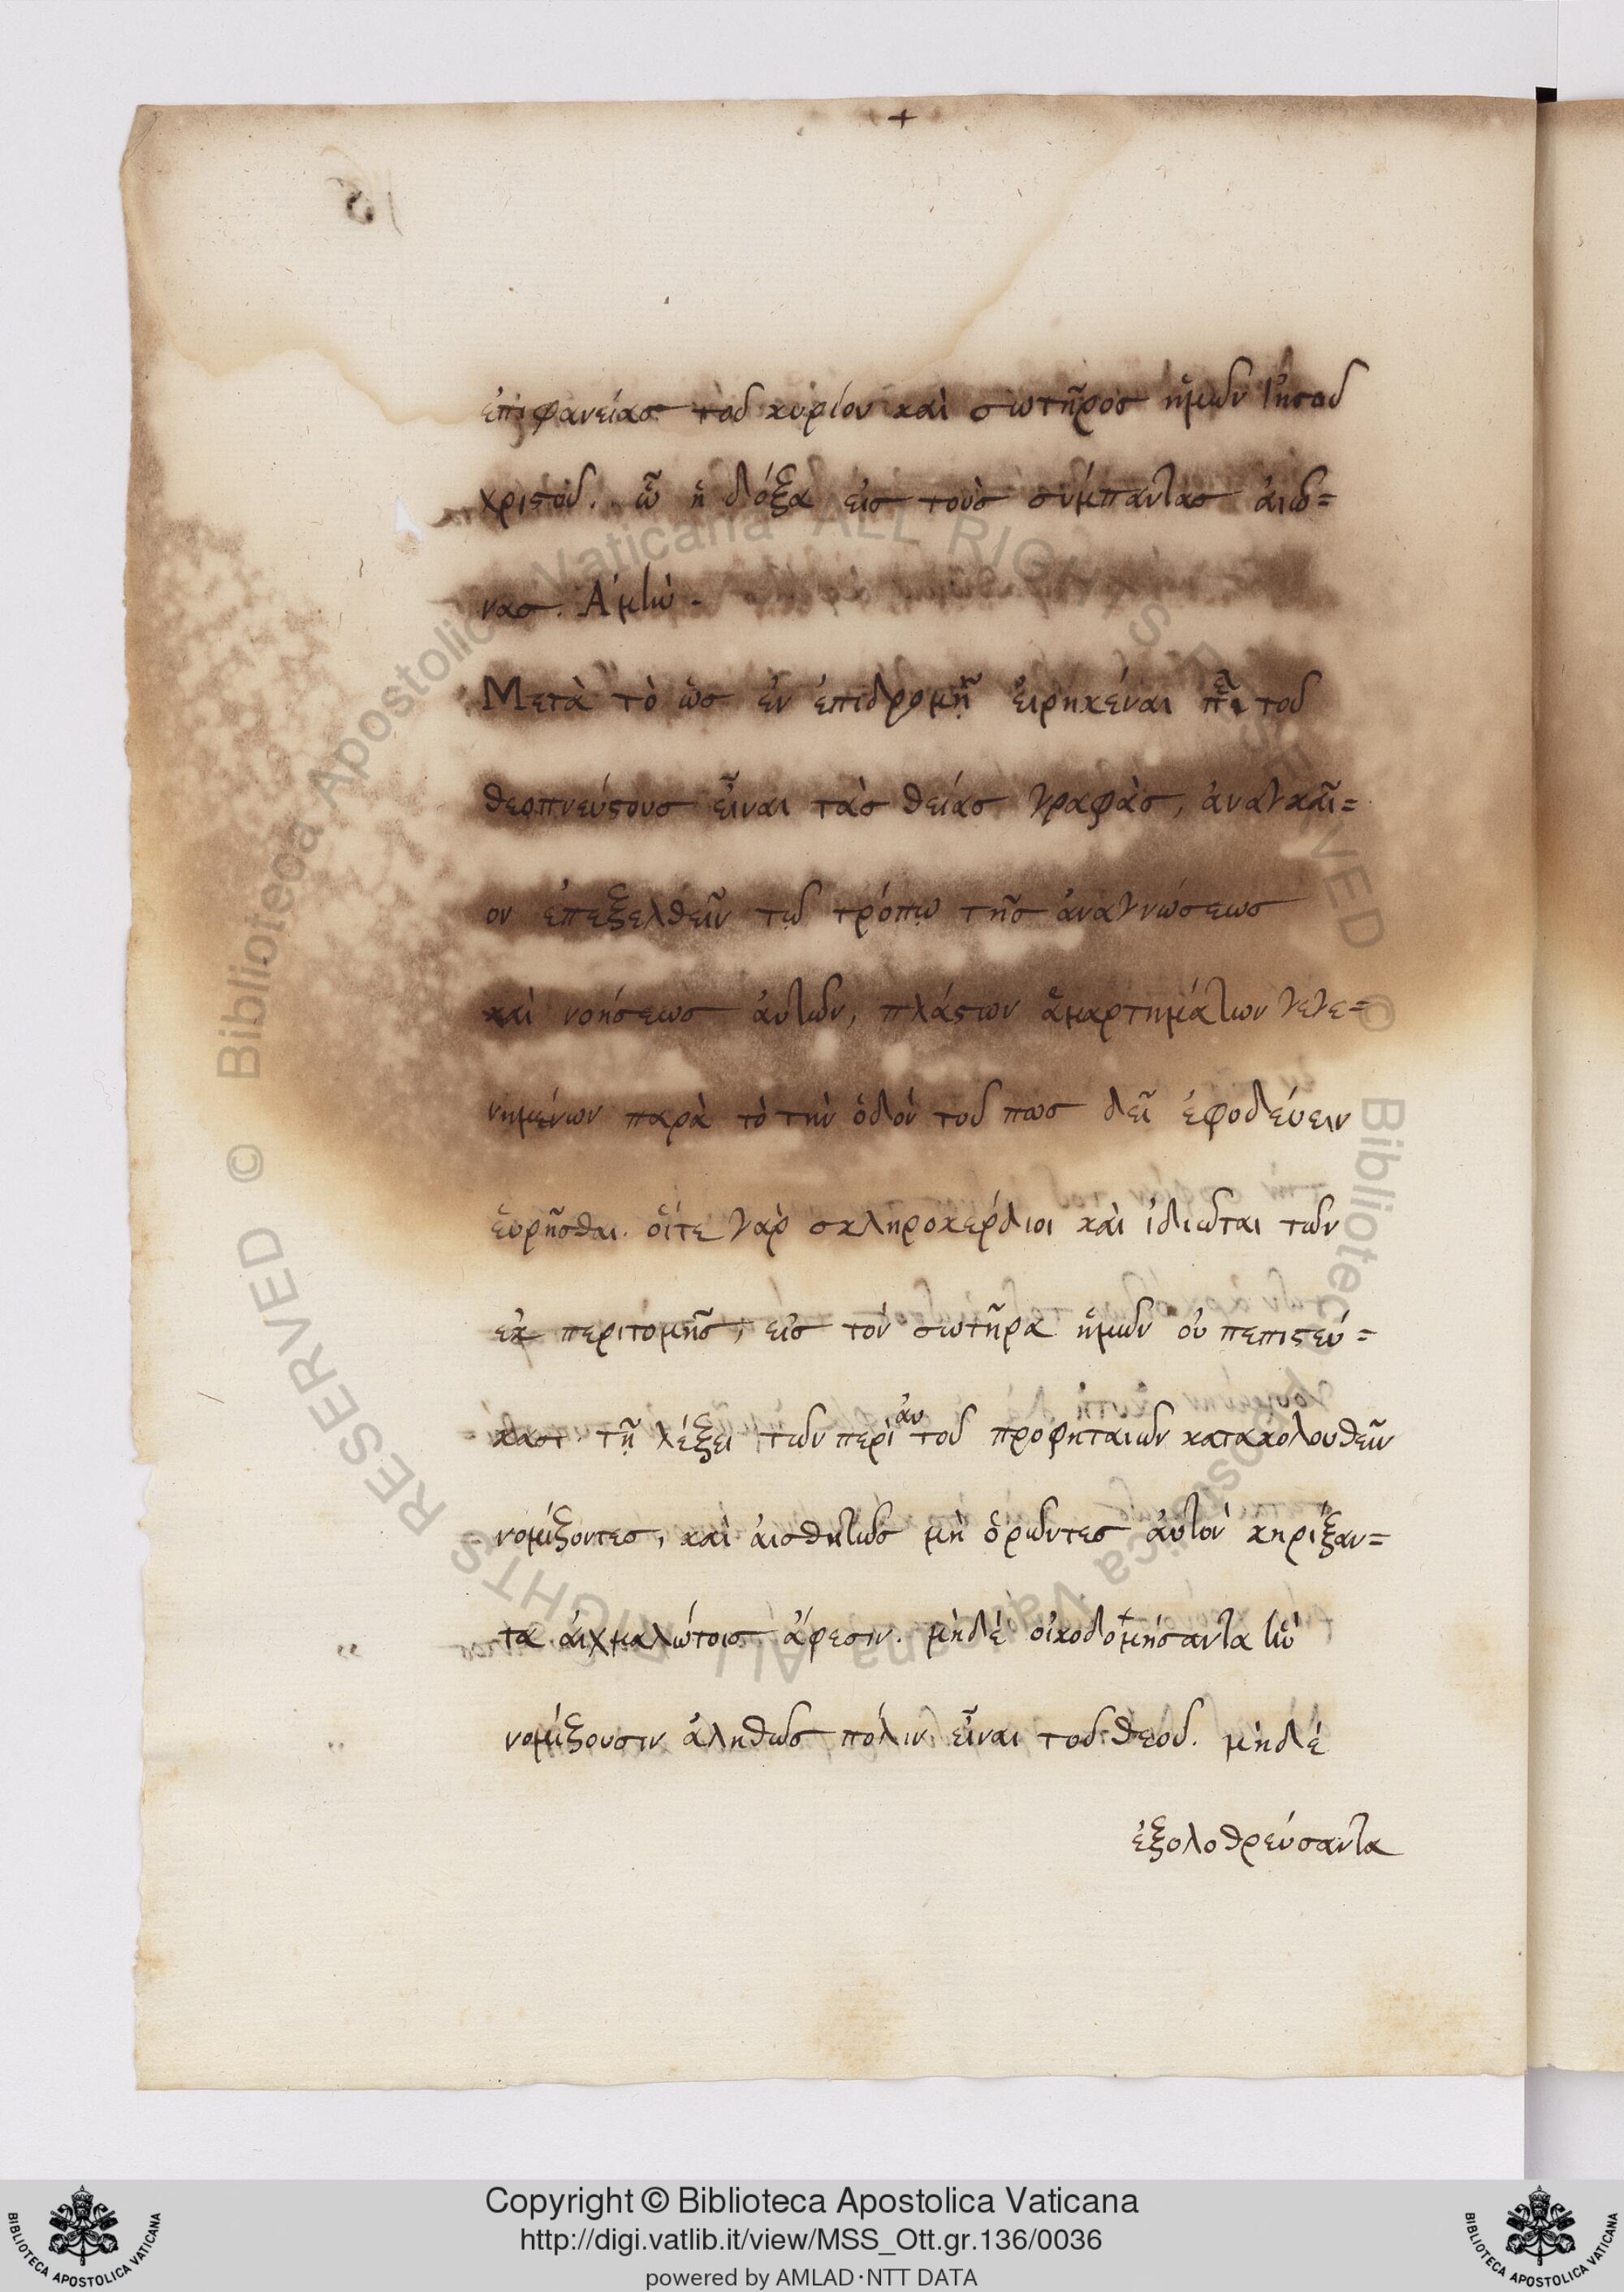 +
ἐπιφανείας τοῦ κυρίου καὶ σωτῆρος ἡμῶν Ἰησοῦ
χριστοῦ. ᾧ ἡ δόξα εἰς τοὺς σύμπαντας αἰῶ=
νας. Ἀμὴν.
Μετὰ τὸ ὡς ἐν ἐπιδρομῇ εἰρηκέναι πὲ τοῦ
θεοπνεύστους εἶναι τὰς θείας γραφὰς, ἀναγκαῖ=
ον ἐπεξελθεῖν τῷ τρόπῳ τῆς ἀναγνώσεως
καὶ νοήσεως αὐτῶν, πλάστων ἁμαρτημάτων γεγε=
νημένων παρὰ τὸ τὴν ὁδὸν τοῦ πως δεῖ ἐφοδεύειν
εὑρῆσθαι. οἵτε γὰρ σκληροκέρδιοι καὶ ἰδιῶται τῶν
ἐκ περιτομῆς, εἰς τὸν σωτῆρα ἡμῶν οὐ πεπιστεύ=
κασι τῇ λέξει τῶν περὶ αὐτοῦ προφητειῶν κατακολουθεῖν
νομίζοντες, καὶ αἰσθητῶς μὴ ὁρῶντες αὐτὸν κηρίξαν=
τα αἰχμαλώτοις ἄφεσιν. μηδὲ οἰκοδομήσαντα ἣν
νομίζουσιν ἀληθῶς πόλιν εἶναι τοῦ θεοῦ. μηδὲ
ἐξολοθρεύσαντα
© Biblioteca Apostolica Vaticana ALL RIGHTS RESERVED
© Biblioteca Apostolica Vaticana ALL RIGHTS RESERVED
Copyright © Biblioteca Apostolica Vaticana
http://digi.vatlib.it/view/MSS_Ott.gr.136/0036
powered by AMLAD·NTT DATA
BIBLIOTECA APOSTOLICA VATICANA
BIBLIOTECA APOSTOLICA VATICANA